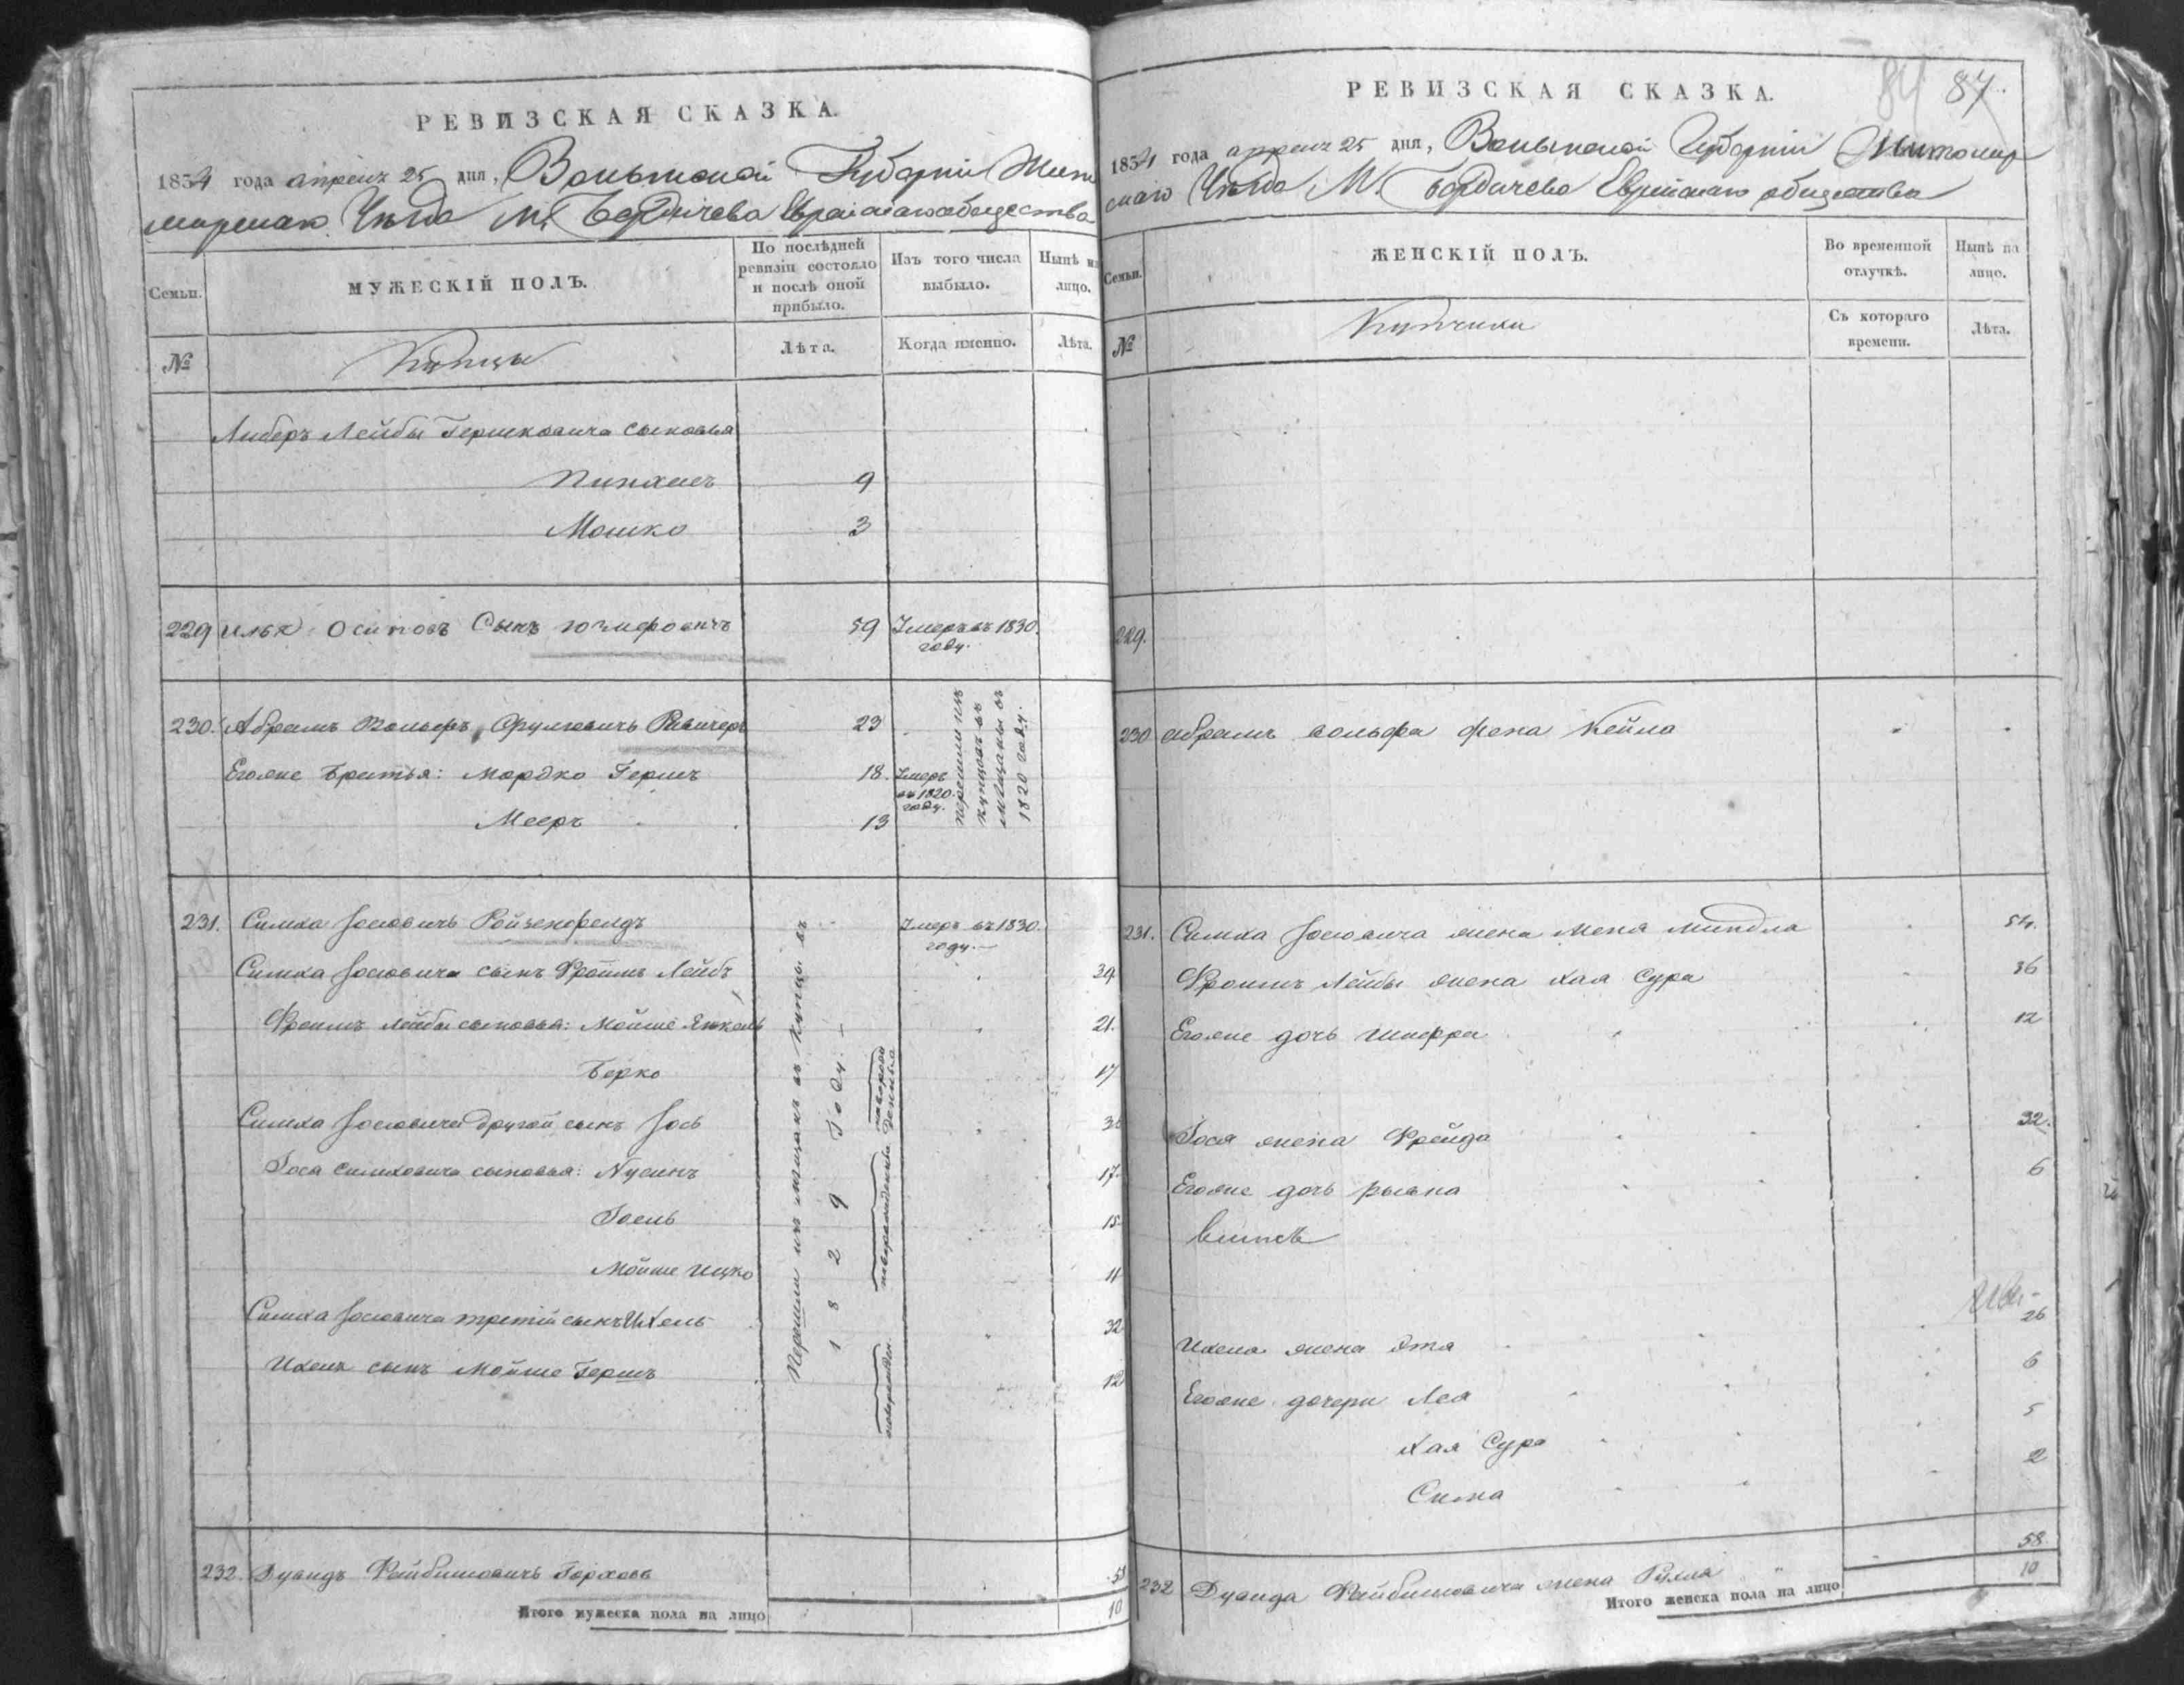 РЕВИЗСКАЯ СКАЗКА.
1834 года апреля 25 дня, Волынской Губернiи Жито
мирскаго Уѣзда М. Бердичева Еврейскаго общества
Семьи.
МУЖЕСКIЙ ПОЛЪ.
По послѣдней
ревизiи состояло
и послѣ оной
прибыло.
Изъ того числа
выбыло.
Нынѣ на
лицо.
№
Купцы
Лѣта.
Когда именно.
Лѣта.
Либеръ Лейбы Гершковича сыновья
Пинхасъ 9
Мошко 3
229 Илья Осиповъ Сынъ Юзефовичъ 59 Умеръ въ 1830
году.
230. Абрамъ Вольфъ Сруловичъ 23
Егоже братья: Мордко Гершъ 18. Умеръ
въ 1820
году.
Мееръ 13
перешли изъ
купцовъ въ
мѣщаны въ
1820 году.
231. Симха Іосiовичъ Ройзенфелдъ Умеръ въ 1830
году.
Симха Іосiовича сынъ Фроимъ Лейбъ 39
Фроимъ Лейбы сыновья: Мойше Янкель 21.
Берко 17
Симха Іосiовича другой сынъ Іось 3
Іося Симховича сыновья: Нусинъ 17
Іоель 15
Мойше Ицко 11
Симха Іосiовича третiй сынъ Ихель 32
Ихеля сынъ Мойше Гершъ 12
Перешли изъ мѣщанъ въ Купцы въ
1829 Году.
232. Дувидъ Файбишовичъ 58
Итого мужеска пола на лицо 10
84 87.
РЕВИЗСКАЯ СКАЗКА.
1834 года апреля 25 дня, Волынской Губернiи Житомир
скаго Уѣзда М. Бердичева Еврейскаго общества
Семьи.
ЖЕНСКIЙ ПОЛЪ.
Во временной
отлучкѣ.
Нынѣ на
лицо.
№
Купчихи
Съ котораго
времени.
Лѣта.
229.
230 Абрамъ Вольфа жена Кейла
231. Симха Іосiовича жена Меня Миндла 54.
Фроимъ Лейбы жена Хая Сура 36
Егоже дочь Шифра 12
Іося жена Фрейда 32.
Егоже дочь Рывка 6
Ихеля жена Эта 26
Егоже дочери Лея 6
Хая Сура 5
Сима 2
232 Дувида Файбишовича жена Рухля 58.
Итого женска пола на лицо 10